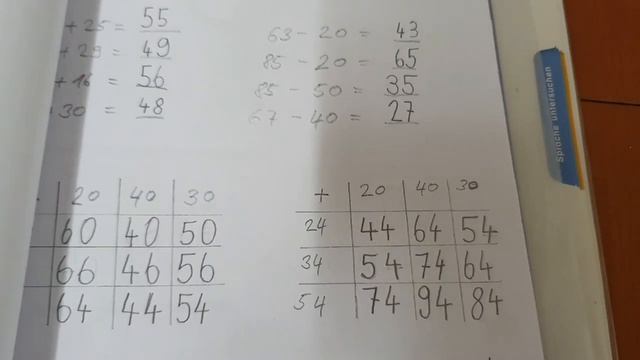 + 25 = 55
+ 29 = 49
+ 16 = 56
30 = 48
63 - 20 = 43
85 - 20 = 65
85 - 50 = 35
67 - 40 = 27
- 20 40 30
60 40 50
66 46 56
64 44 54
+ 20 40 30
24 44 64 54
34 54 74 64
54 74 94 84
Sprache untersuchen